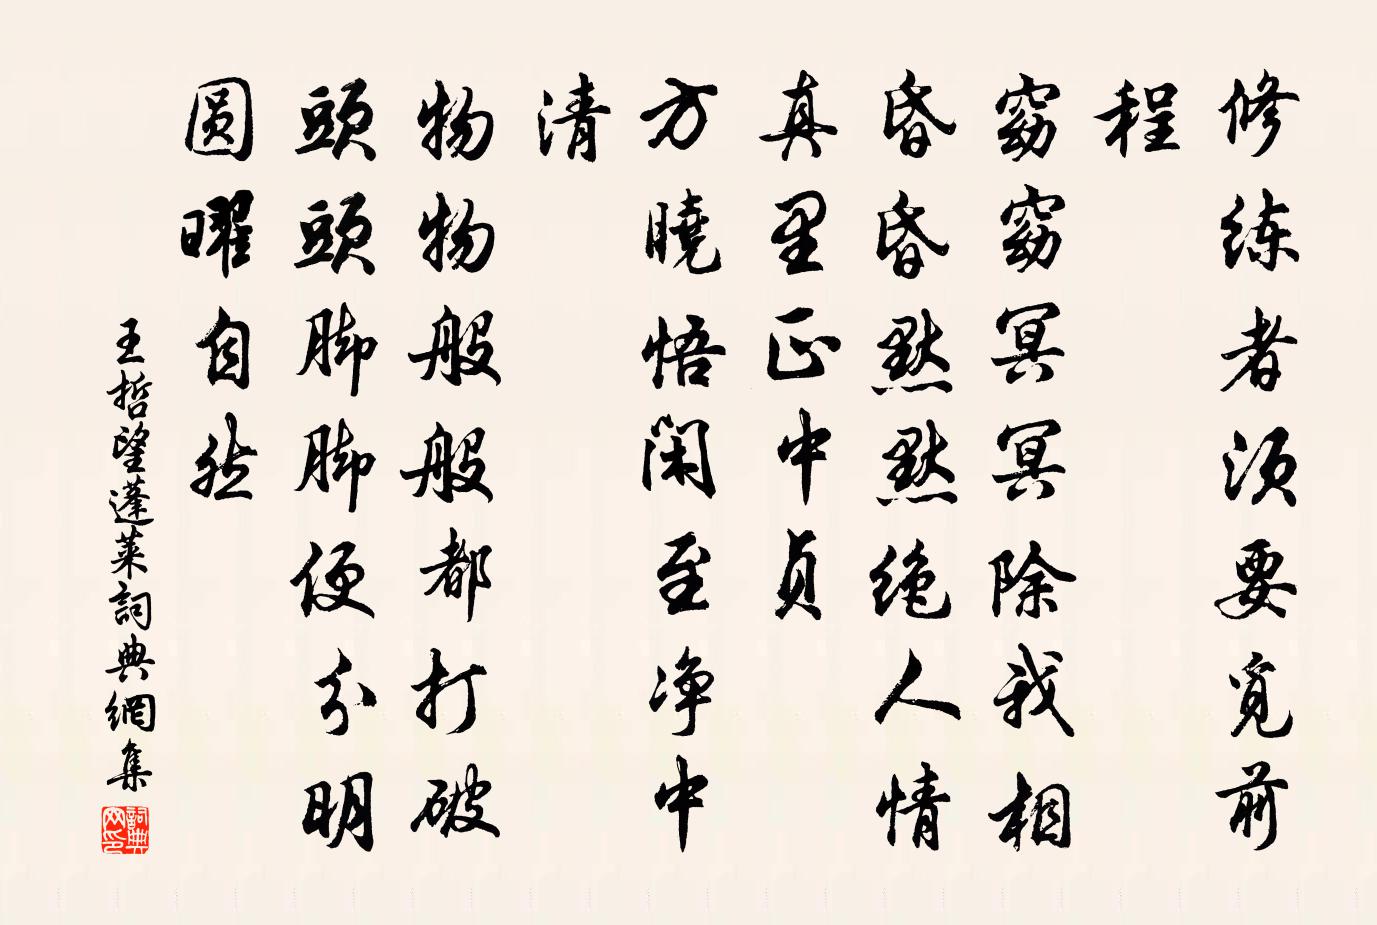 修练者须要觅前
程
窈窈冥冥除我相
昏昏默默绝人情
真里正中贞
方曉悟闲至净中
清
物物般般都打破
頭頭脚脚便分明
圆曜自然
王哲望蓬莱詞典網集
詞典网印